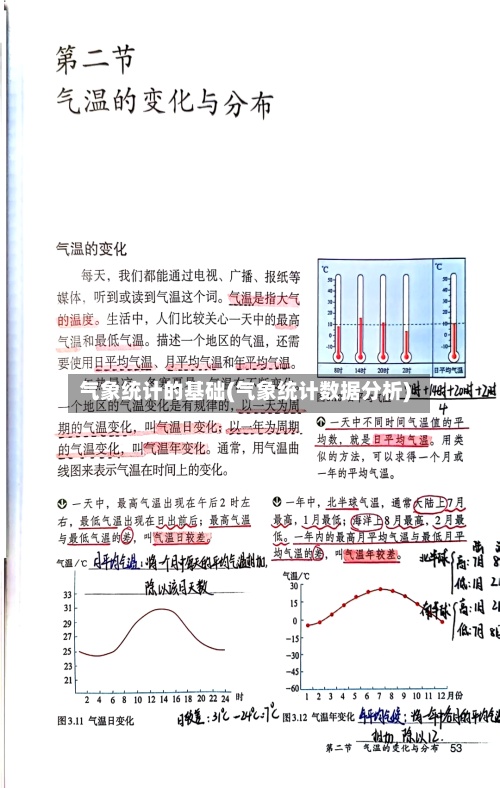 第二节
气温的变化与分布
气温的变化
每天，我们都能通过电视、广播、报纸等
媒体，听到或读到气温这个词。气温是指大气
的温度。生活中，人们比较关心一天中的最高
气温和最低气温。描述一个地区的气温，还需
要使用日平均气温、月平均气温和年平均气温。
气象统计的基础(气象统计数据分析)
一个地区的气温变化是有规律的，以一天为周
期的气温变化，叫气温日变化；以一年为周期
的气温变化，叫气温年变化。通常，用气温曲
线图来表示气温在时间上的变化。
℃ ℃
8时 14时 20时 2时 日平均气温
+14时+20时+2时
4
一天中不同时间气温值的平
均数，就是日平均气温。用类
似的方法，可以求得一个月或
一年的平均气温。
一天中，最高气温出现在午后2时左
右，最低气温出现在日出前后；最高气温
与最低气温的差，叫气温日较差。
一年中，北半球气温，通常大陆上7月
最高，1月最低；海洋上8月最高，2月最
低。一年内的最高月平均气温与最低月平
均气温的差，叫气温年较差。
北半球
高:7月 8
低:1月 2
南半球
高:1月 2
低:7月 8
气温/℃
除以该月天数
33
31
29
27
25
23
21
2 4 6 8 10 12 14 16 18 20 22 24 时
图3.11 气温日变化
日较差:31℃-24℃=7℃
气温/℃
30
15
0
-15
-30
-45
-60
1 2 3 4 5 6 7 8 9 10 11 12月份
图3.12 气温年变化
相加,除以12.
第二节 气温的变化与分布 53